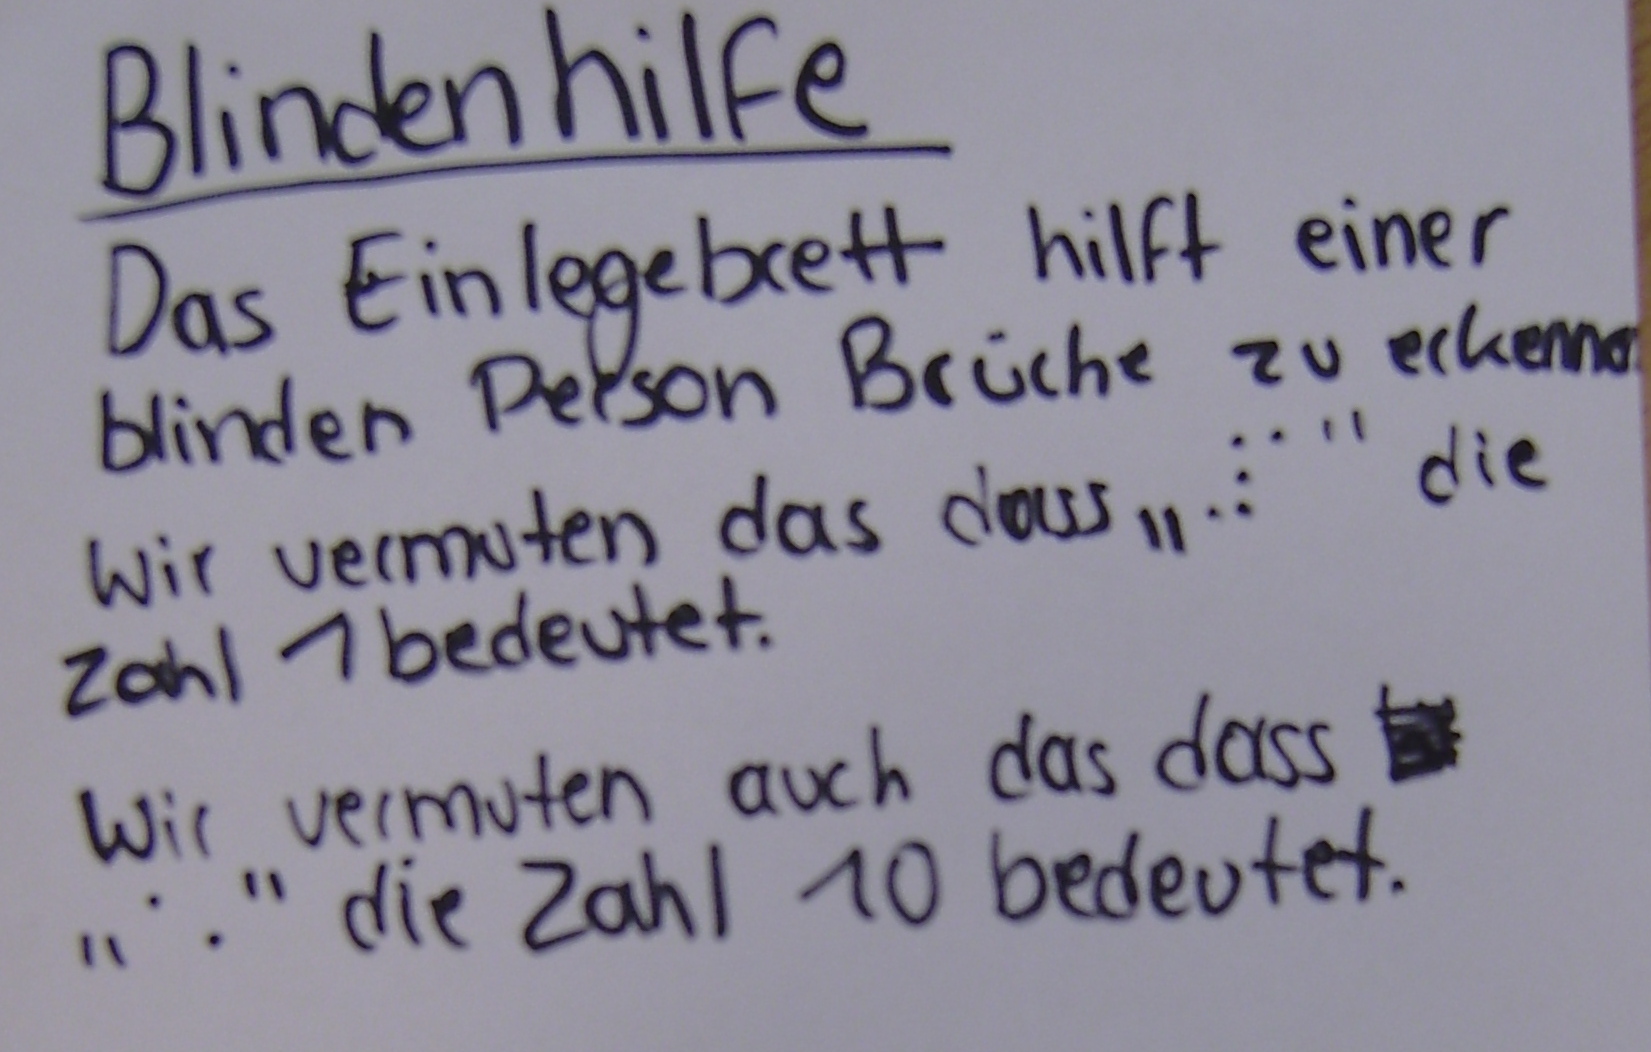 Blindenhilfe
Das Einlegebrett hilft einer
blinden Person Brüche zu erkennen
Wir vermuten das dass „⠠⠼⠁" die
Zahl 1 bedeutet.
Wir vermuten auch das dass
„⠢" die Zahl 10 bedeutet.